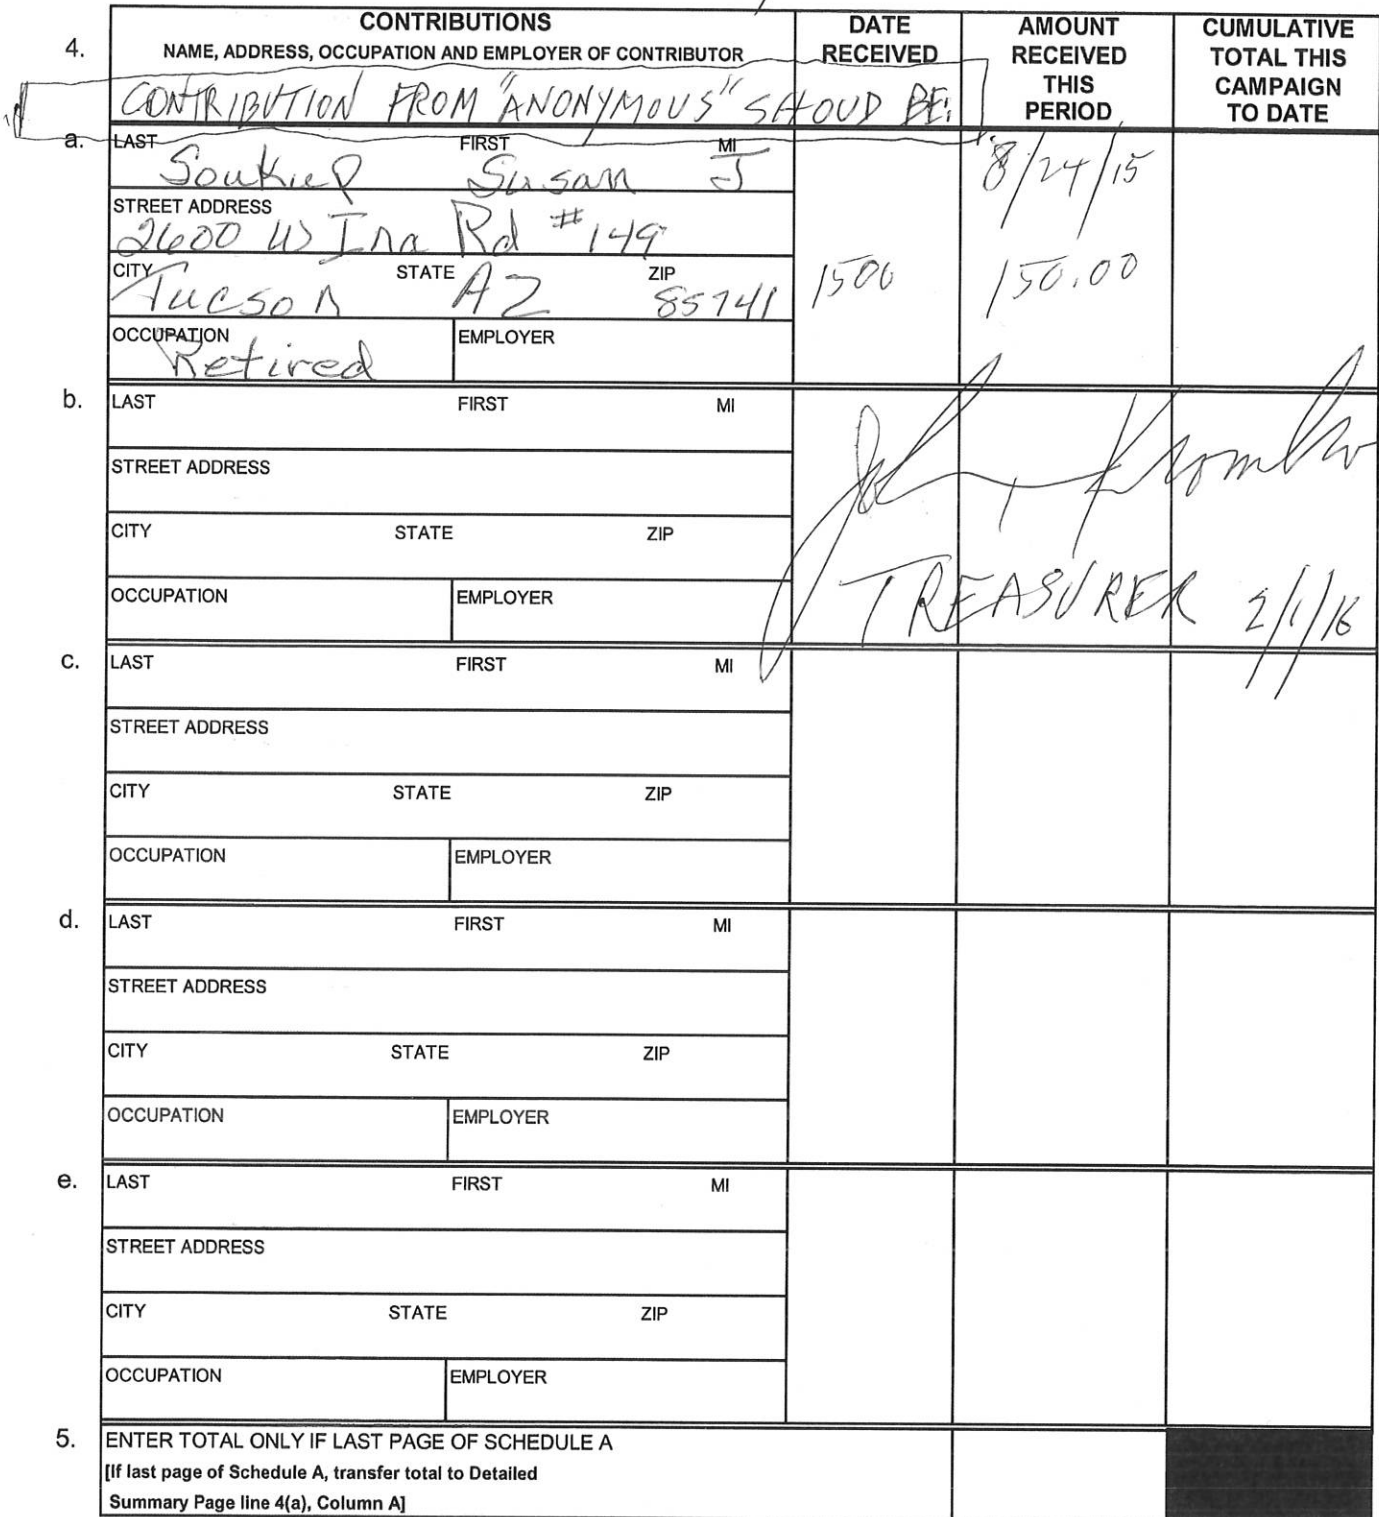 CONTRIBUTIONS
4. NAME, ADDRESS, OCCUPATION AND EMPLOYER OF CONTRIBUTOR
DATE RECEIVED
AMOUNT RECEIVED THIS PERIOD
CUMULATIVE TOTAL THIS CAMPAIGN TO DATE
CONTRIBUTION FROM "ANONYMOUS" SHOUD BE:
a. LAST FIRST MI
Soukup Susan J
8/24/15
STREET ADDRESS
2600 W Ina Rd #149
CITY STATE ZIP
Tucson AZ 85741 1500 150.00
OCCUPATION EMPLOYER
Retired
b. LAST FIRST MI
STREET ADDRESS
John
CITY STATE ZIP
OCCUPATION EMPLOYER
TREASURER 2/1/16
c. LAST FIRST MI
STREET ADDRESS
CITY STATE ZIP
OCCUPATION EMPLOYER
d. LAST FIRST MI
STREET ADDRESS
CITY STATE ZIP
OCCUPATION EMPLOYER
e. LAST FIRST MI
STREET ADDRESS
CITY STATE ZIP
OCCUPATION EMPLOYER
5. ENTER TOTAL ONLY IF LAST PAGE OF SCHEDULE A
[If last page of Schedule A, transfer total to Detailed
Summary Page line 4(a), Column A]